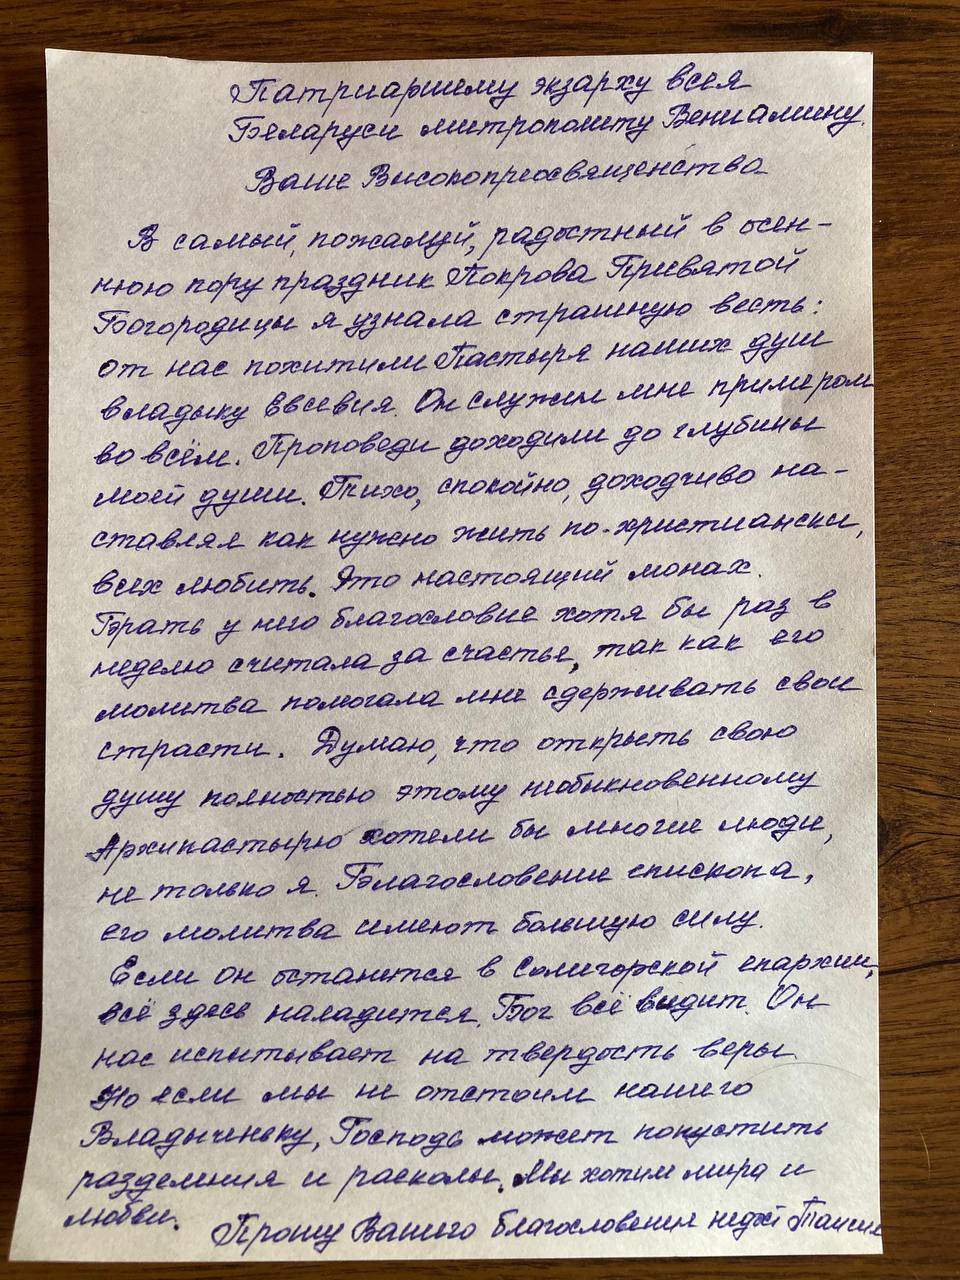 Патриаршему экзарху всея
Беларуси митрополиту Вениамину.
Ваше Высокопреосвященства
В самый, пожалуй, радостный в осен-
нюю пору праздник Покрова Присвятой
Богородицы я узнала страшную весть:
от нас похитили Пастыря наших душ
владыку Евсевия. Он служил мне примером
во всём. Проповеди доходили до глубины
моей души. Тихо, спокойно, доходчиво на-
ставлял как нужно жить по-христиански,
всех любить. Это настоящий монах.
Брать у него благословие хотя бы раз в
неделю считала за счастье, так как его
молитва помогала мне сдерживать свои
страсти. Думаю, что открыть свою
душу полностью этому необыкновенному
Архипастырю хотели бы многие люди,
не только я. Благословение епископа,
его молитва имеют большую силу.
Если он останется в Солигорской епархии,
всё здесь наладится. Бог всё видит. Он
нас испытывает на твердость веры.
Но если мы не отстоим нашего
Владыченьку, Господь может попустить
разделения и расколы. Мы хотим мира и
любви.
Прошу Вашего благословения